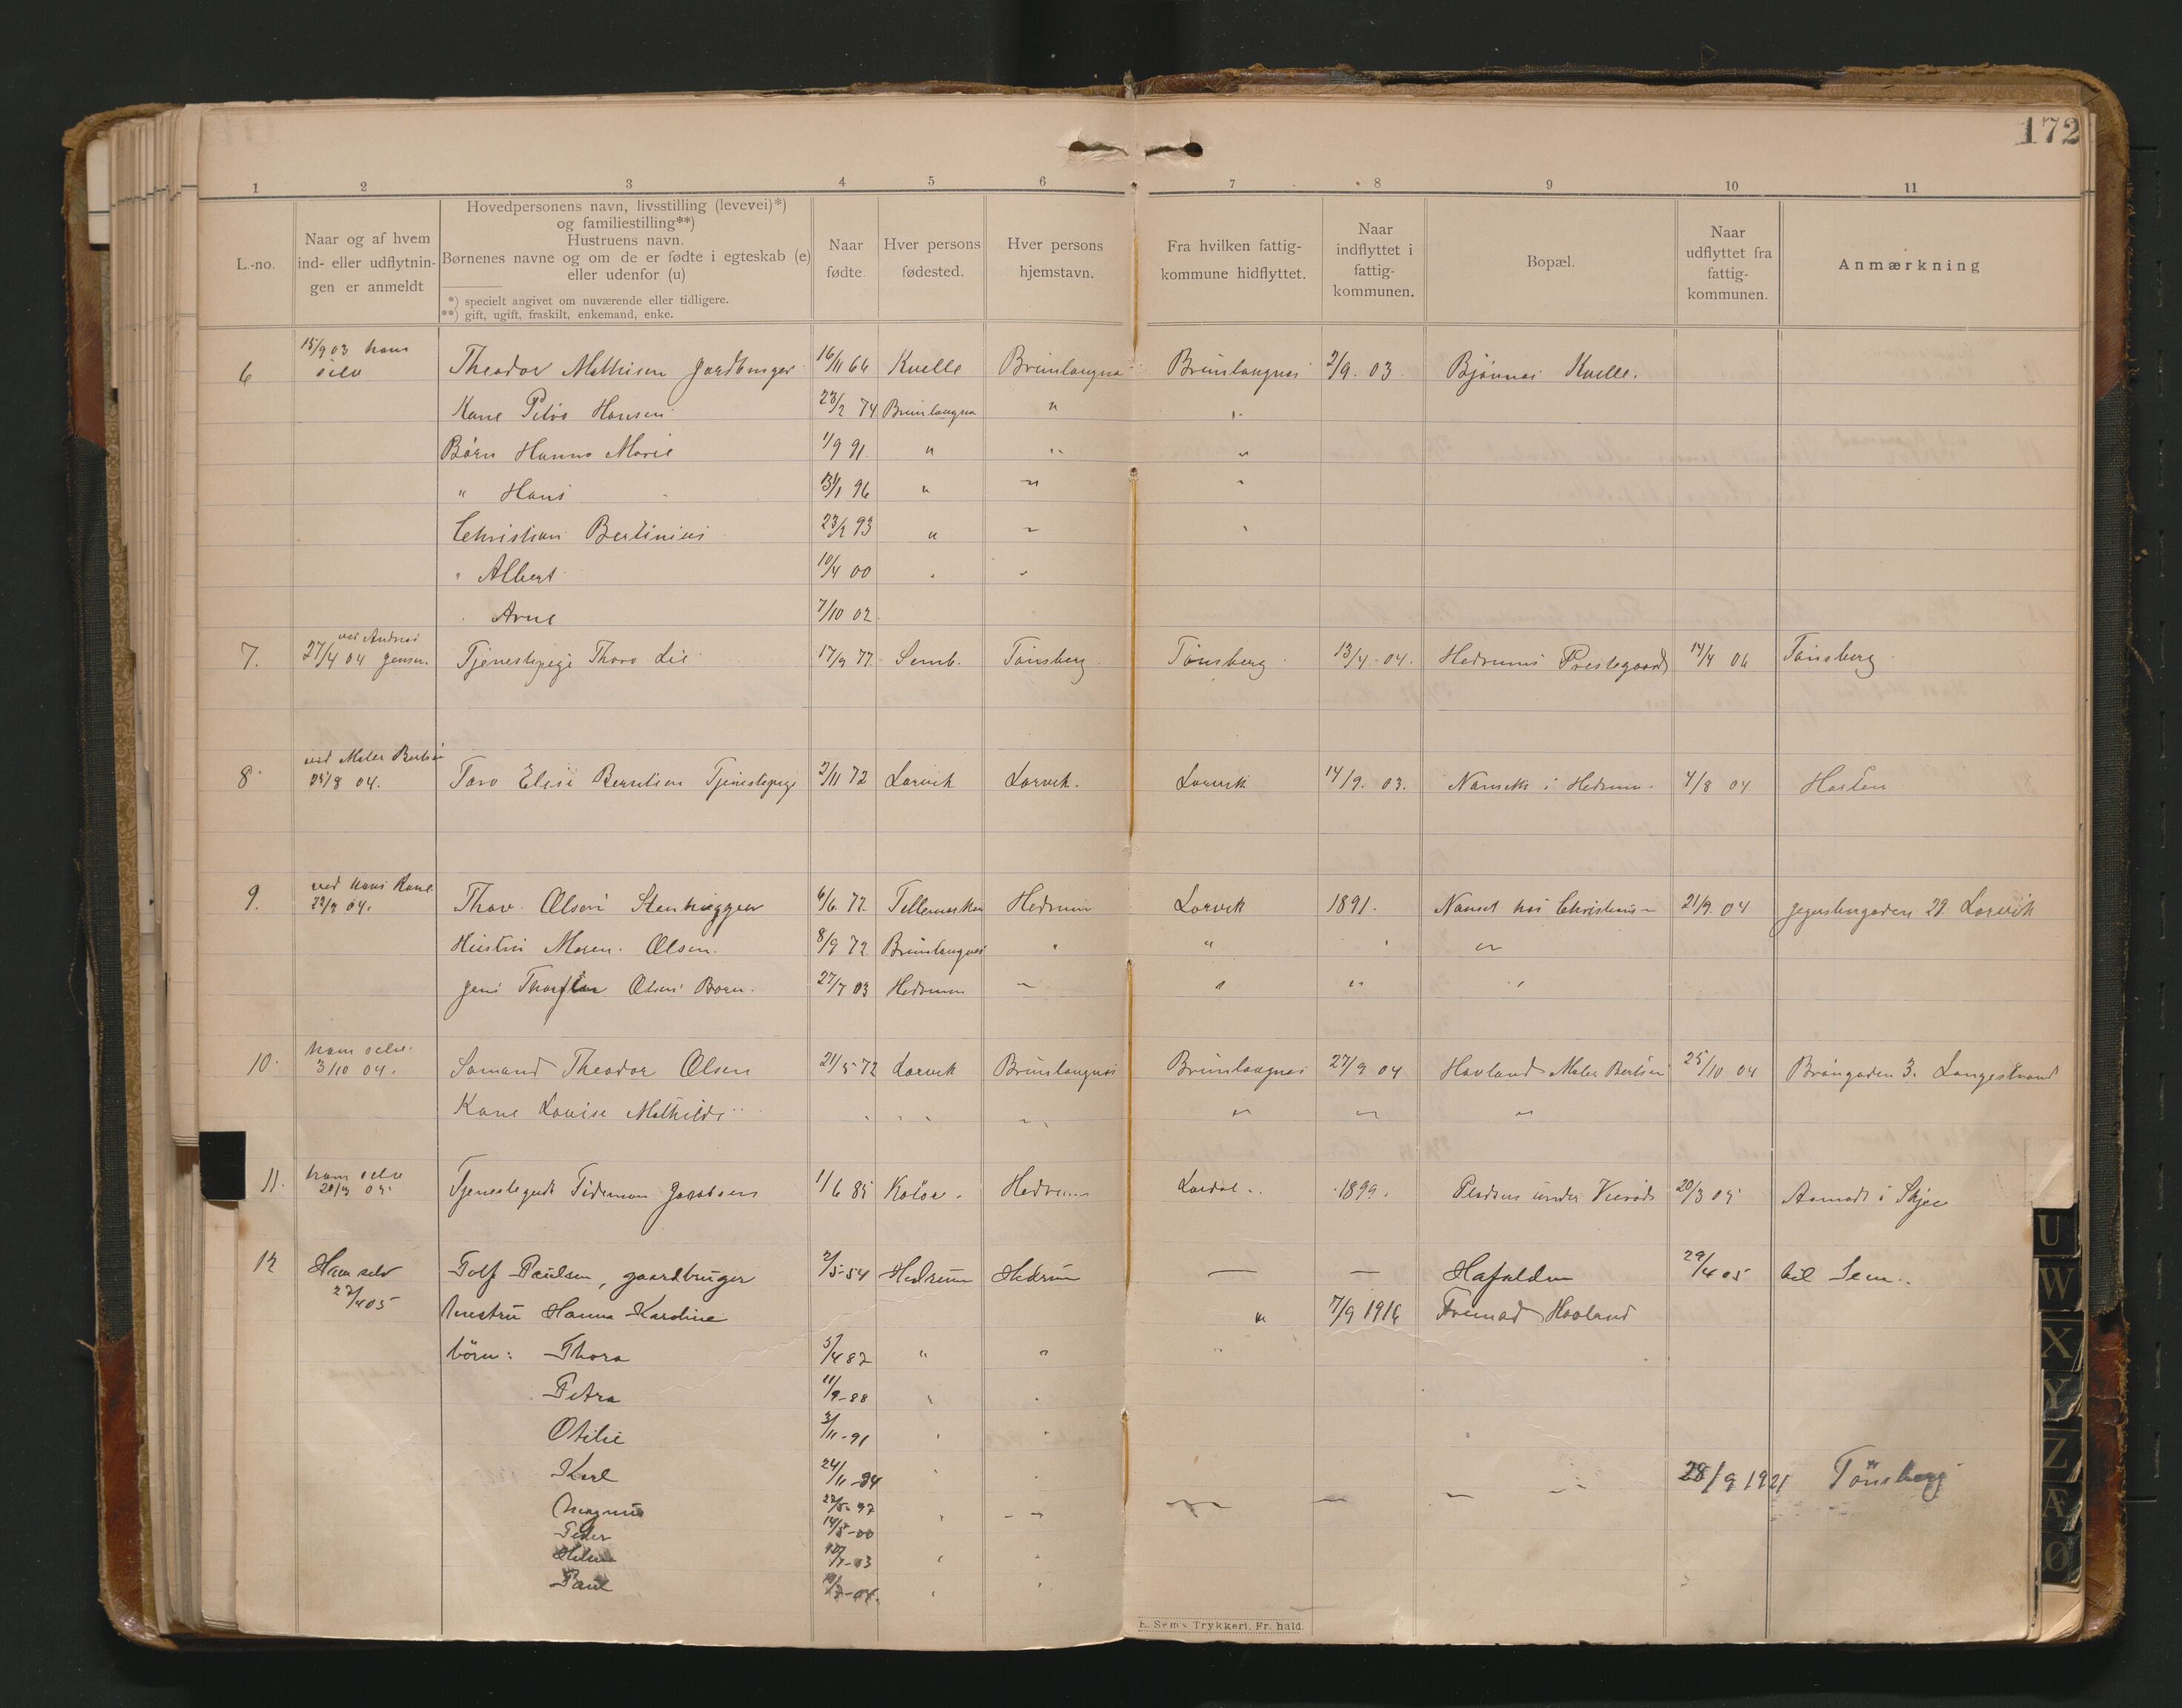 172
1 2 3 4 5 6 7 8 9 10 11
L.-no.
Naar og af hvem
ind- eller udflytnin-
gen er anmeldt
Hovedpersonens navn, livsstilling (levevei)*)
og familiestilling**)
Hustruens navn.
Børnenes navne og om de er fødte i egteskab (e)
eller udenfor (u)
*) specielt angivet om nuværende eller tidligere.
**) gift, ugift, fraskilt, enkemand, enke.
Naar
fødte.
Hver persons
fødested.
Hver persons
hjemstavn.
Fra hvilken fattig-
kommune hidflyttet.
Naar
indflyttet i
fattig-
kommunen.
Bopæl.
Naar
udflyttet fra
fattig-
kommunen.
Anmærkning
15/9 03 ham
6 selv Theodor Mathisen Gardbruger 16/11 66 Kvelle Brunlangnæs Brunlangnæs 2/9. 03. Bjønnes Kvelle.
Kone Hansen 23/2 74 Brunlangnæs " "
Børn Hanna Marie 1/9 91 " " "
" Hans 96 " " "
Christian Bertinius 23/2 93 " " "
" Albert 10/4 00 " "
Arne 7/10 02.
ved Andreas
7. 27/4 04 Jensen. Tjenestepige Thora Lie 17/9 77. Semb. Tønsberg Tønsberg 13/4. 04. Hedrums Prestegaard 14/4 06 Tønsberg
ved Maler Berntsen
8 25/8 04. Elise Berntsen Tjenestepige 2/11 72 Larvik Larvik. Larvik 14/9. 03. i Hedrum. 4/8 04 Horten
ved hans Kone
9. 22/9 04. Thov. Olsen Stenhugger 6/6 77. Hedrum Larvik 1891. Nanset hos Christians 21/9. 04 29. Larvik
Hustru Maren. Olsen. 8/9 72. Brunlangnæs " " " "
Jens Olsen Barn. 27/7 03 Hedrum " " " "
ham selv.
10. 3/10 04. Sømand Theodor Olsen 21/5 72 Larvik Brunlangnæs Brunlangnæs 27/9 04 Hovland Maler Berntsen 25/10 04 3. Langestrand
Kone Lovise Mathilde " " " " " "
ham selv
11. 20/3 05. Tjenestegut Tideman Jacobsen 1/6 85 Hedrum Lardal 1899. under 20/3 05 i Skjee
12 Ham selv Tolf Paulsen, gaardbruger 2/5-54 Hedrum Hedrum — — Hafallen 29/4 05 til Sem.
27/4 05
hustru Hanna Karoline " 7/9 1916 Fremad Hovland
børn: Thora 5/4 87 " "
Petra 11/9-88 " "
Otilie 3/11-91 " "
Karl 24/11-94 " " 28/9 1921 Tönsberg
Magnus 22/5-97 " "
Peder 14/5-00
Helene 7-03 " "
Paul " "
E. Sem's Trykkeri, Fr. hald.
U
W
X
Y
Z
Æ
Ø